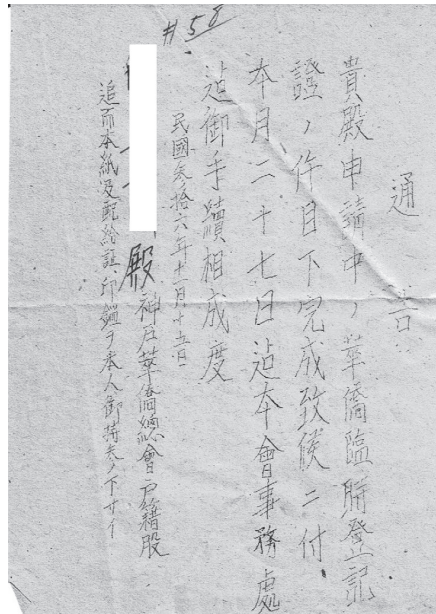 #58
通告
貴殿申請中ノ華僑臨時登記
證ノ件目下完成致候ニ付
本月二十七日迠本會事務處
迠御手續相成度
民國叁拾六年十一月十五日
殿
神戸華僑總會戸籍股
追而本紙及配給証、印鑑ヲ本人御持参ノ下サイ